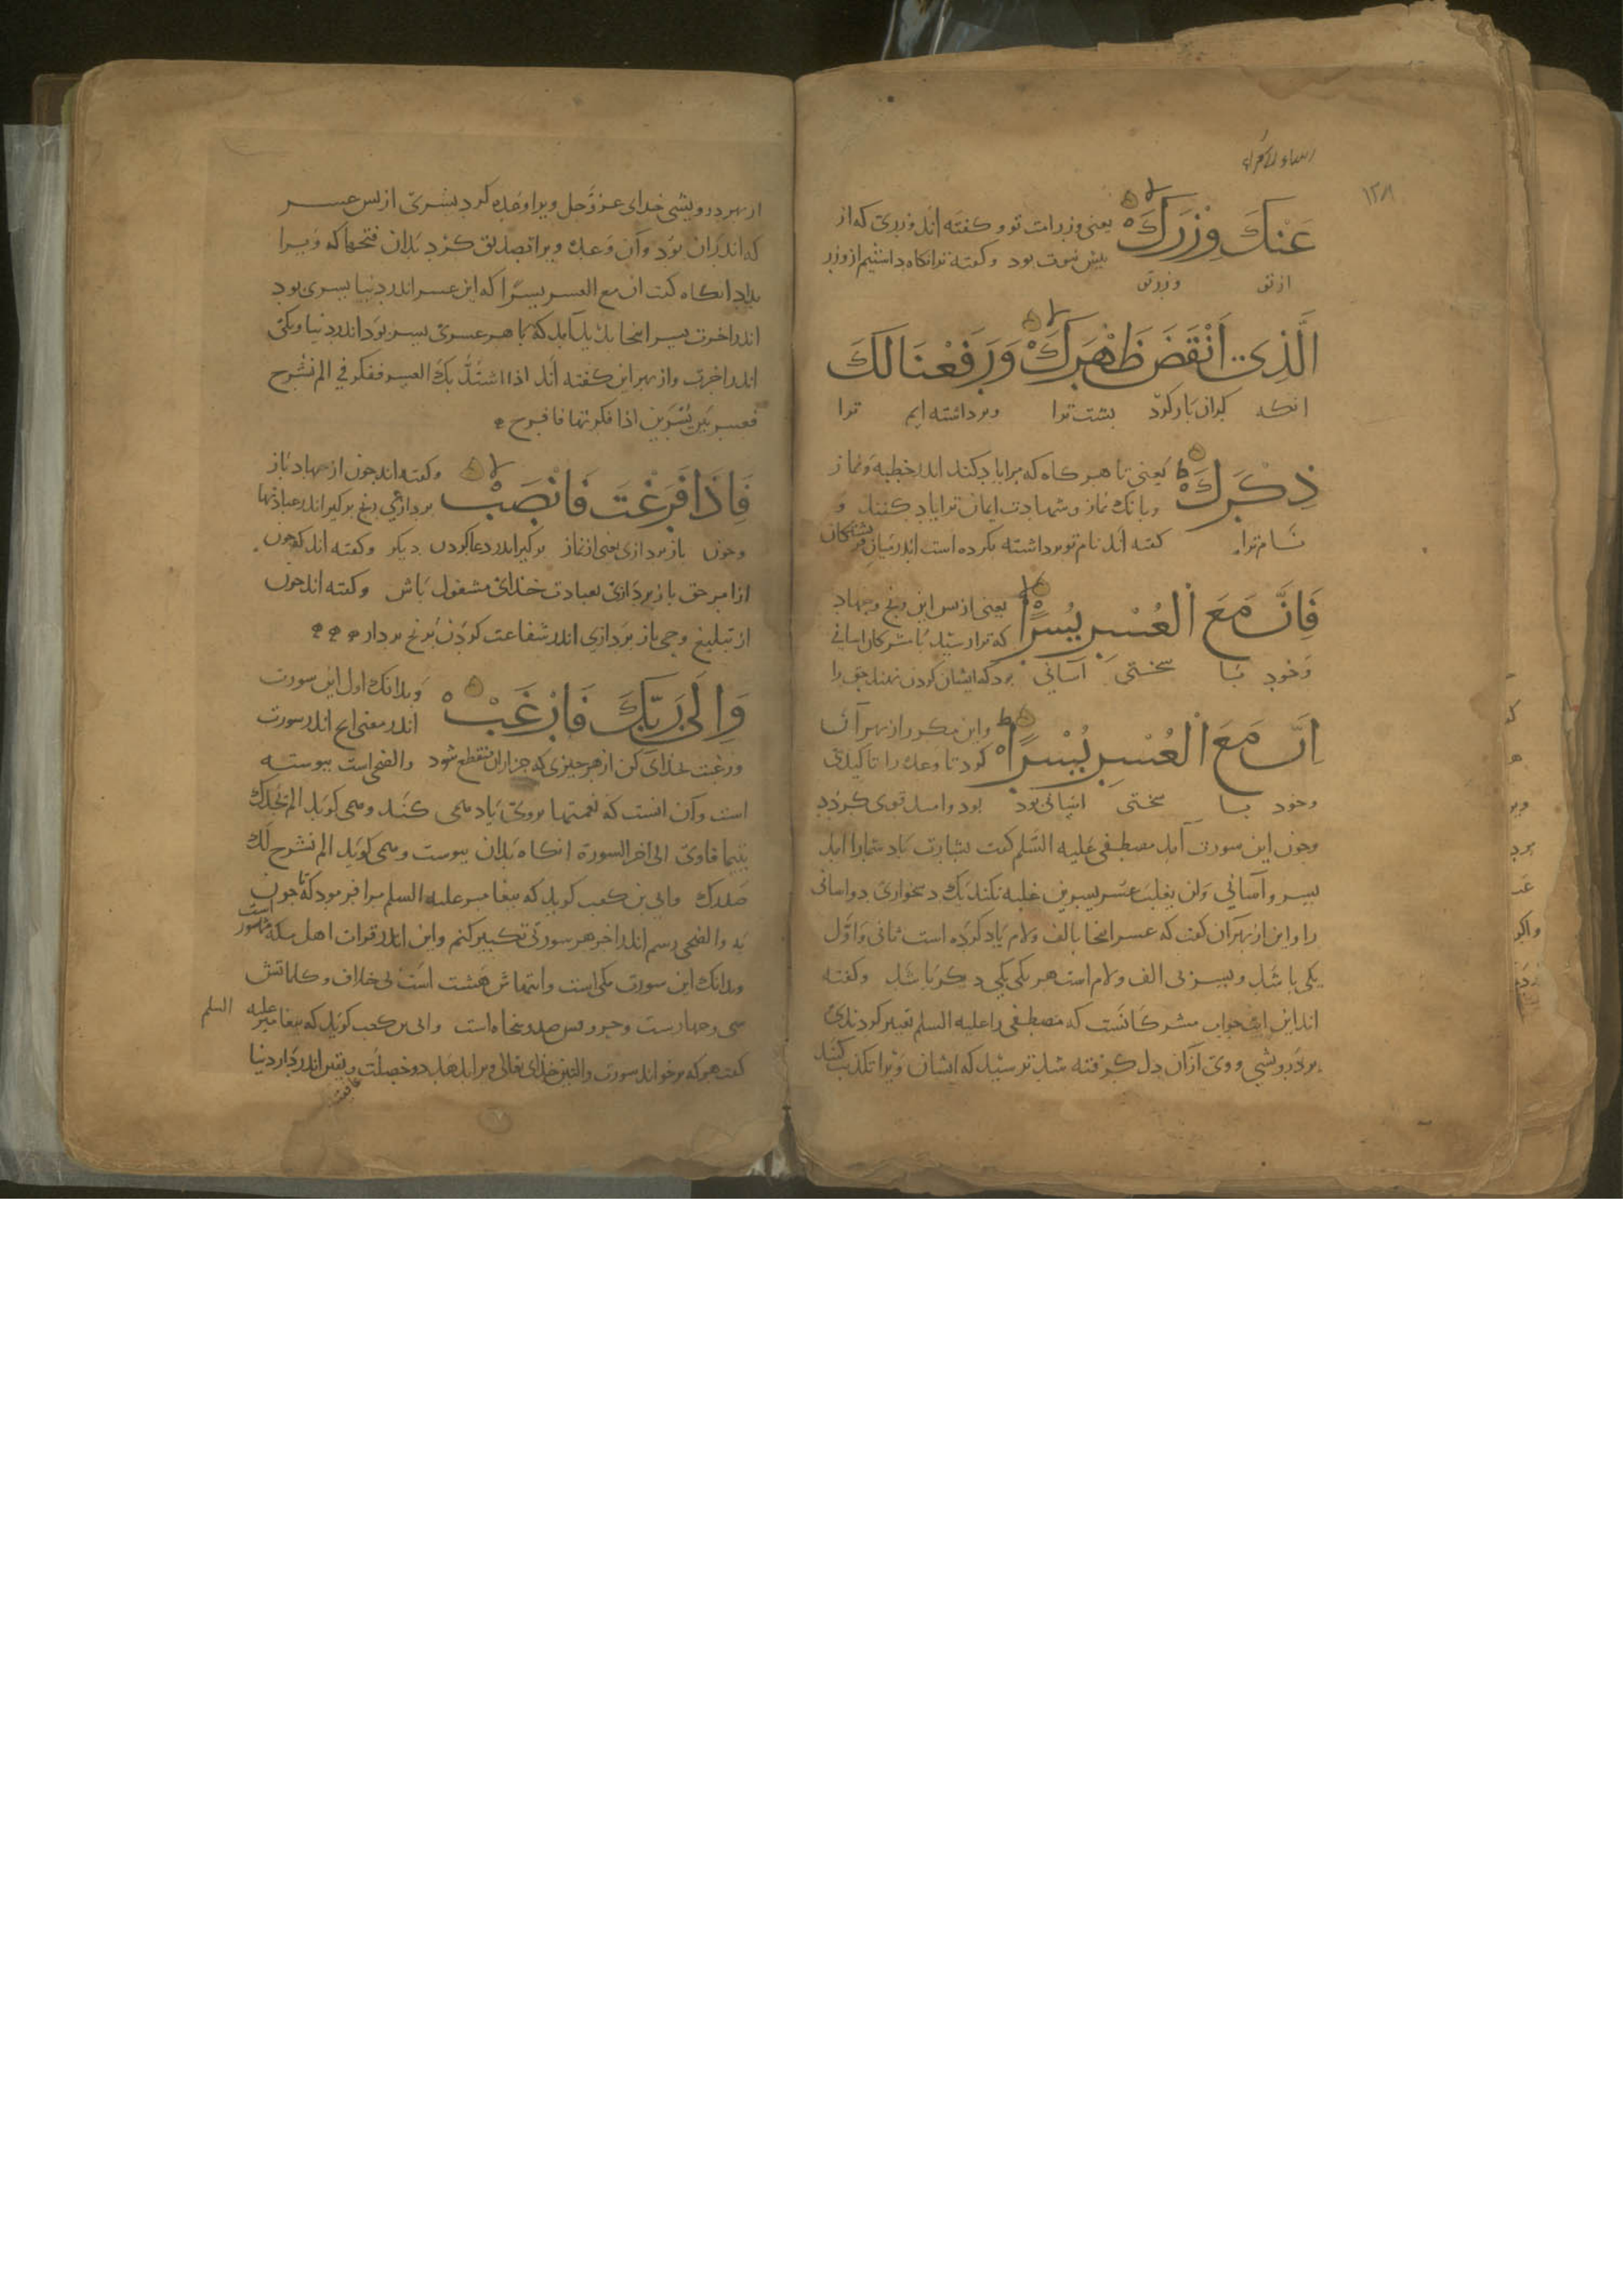 عَنْكَ وِزْرَكَ یعنی وزر امت تو و کفته اند وزری که از
پیش نبوت بود و کفته ترا نکاه داشتیم از وزر
از تو وزر تو
الَّذِی اَنْقَضَ ظَهْرَكَ وَرَفَعْنَا لَكَ
انکه کران بار کرد پشت ترا و برداشته ایم ترا
ذِكْرَكَ یعنی تا هر کاه که مرا یاد کنند اندر خطبه و نماز
و بانك نماز و شهادت ایمان ترا یاد کنند و
نام ترا کفته اند نام تو برداشته بکرده است اندر میان فریشتکان
فَاِنَّ مَعَ الْعُسْرِ يُسْرًا یعنی از پس این رنج و جهاد
که ترا رسید با مشرکان اسانی
و خود با سختی آسانی بود که ایشان کردن نهند حق را
اِنَّ مَعَ الْعُسْرِ يُسْرًا و این مکرر از بهر آن
کرد تا وعده را تاکید
و خود با سختی اسانی بود بود و امید قوی کردد
و چون این سورت آمد مصطفی علیه السلم کفت بشارت باد شما را امد
یسر و آسانی و لن یغلب عسر یسرین غلبه نکند یك دشخواری دو اسانی
را و این از بهر آن کفت که عسر اینجا بالف و لام یاد کرده است ثانی و اول
یکی باشد و یسر بی الف و لام است هر یکی یکی دیکر باشد و کفته
اند این ایت جواب مشرکانست که مصطفی را علیه السلم تعییر کردندی
بدرویشی و وی از آن دل کرفته شد ترسید که ایشان ویرا تکذیب کنند
از بهر درویشی خدای عز و جل ویرا وعده کرد بیسری از پس عسر
که اندر آن بود و آن وعده ویرا تصدیق کرد بدان فتحها که ویرا
بداد انکاه کفت ان مع العسر یسرا که این عسر اندر دنیا یسری بود
اندر اخرت یسر اینجا بدید آمد که با هر عسری یسر بود اندر دنیا و یکی
اندر اخرت و از بهر این کفته اند اذا اشتد بك العسر ففکر فی الم نشرح
فعسر بین یسرین اذا فکرتها فافرح
فَاِذَا فَرَغْتَ فَانْصَبْ و کفته اند چون از جهاد باز
بردازی رنج بر کیر اندر عبادتها
و چون باز بردازی یعنی از نماز بر کیر اندر دعا کردن دیکر و کفته اند که چون
از امر حق باز بردازی بعبادت خدای مشغول باش و کفته اند چون
از تبلیغ وحی باز بردازی اندر شفاعت کردن برنج بردار
وَاِلٰی رَبِّكَ فَارْغَبْ و بدانك اول این سورت
اندر معنی اندر سورت
و رغبت بخدای کن از هر چیزی که جز از ان منقطع شود والضحی است پیوسته
است و آن انست که نعمتها بر وی یاد می کند و می کوید الم یجدك
یتیما فاوی الی اخر السورة انکاه بدان پیوست و می کوید الم نشرح لك
صدرك و ابی بن کعب کوید که پیغامبر علیه السلم مرا فرمود که تا چون
به والضحی رسم اندر اخر هر سورتی تکبیر کنم و این اندر قرات اهل مکه مشهور است
و بدانك این سورت مکی است و ایتهاش هشت است بی خلاف و کلماتش
سی و چهارست و حروفش صد و پنجاه است و ابی بن کعب کوید که پیغامبر علیه السلم
کفت هر که برخواند سورت والتین خدای تعالی ویرا بدهد دو خصلت یقین اندر دار دنیا